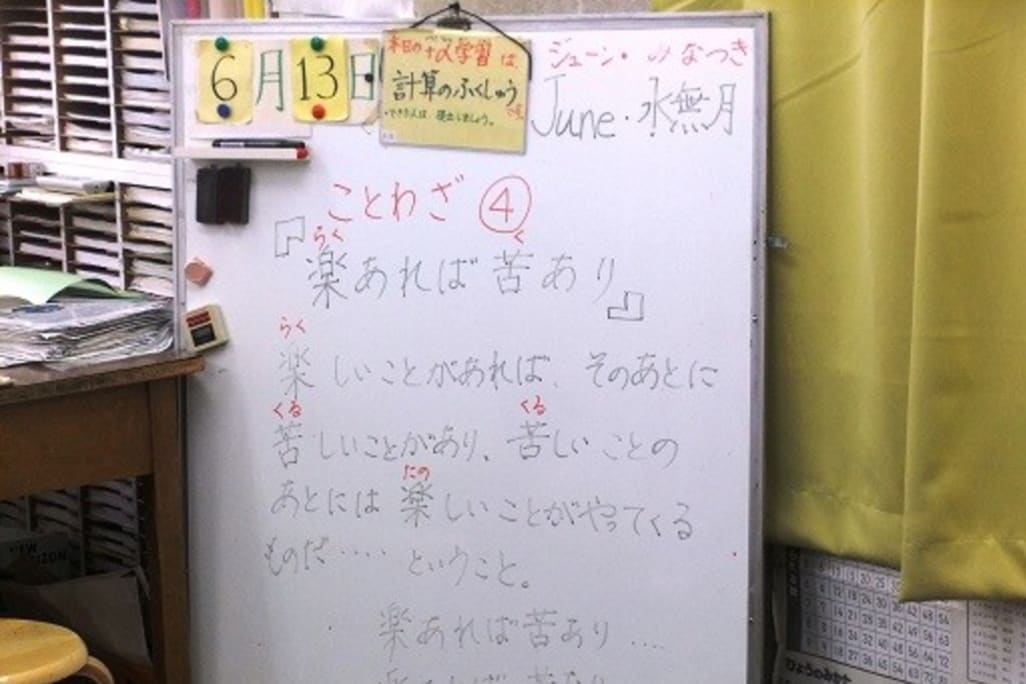 6月13日
本日の+α学習は、
計算のふくしゅう
・できた人は、提出しましょう。
ジューン・みなづき
June・水無月
ことわざ④
らく く
『楽あれば苦あり』
らく
楽しいことがあれば、そのあとに
くる くる
苦しいことがあり、苦しいことの
たの
あとには楽しいことがやってくる
ものだ‥‥ということ。
楽あれば苦あり‥‥
ひょうのみかた